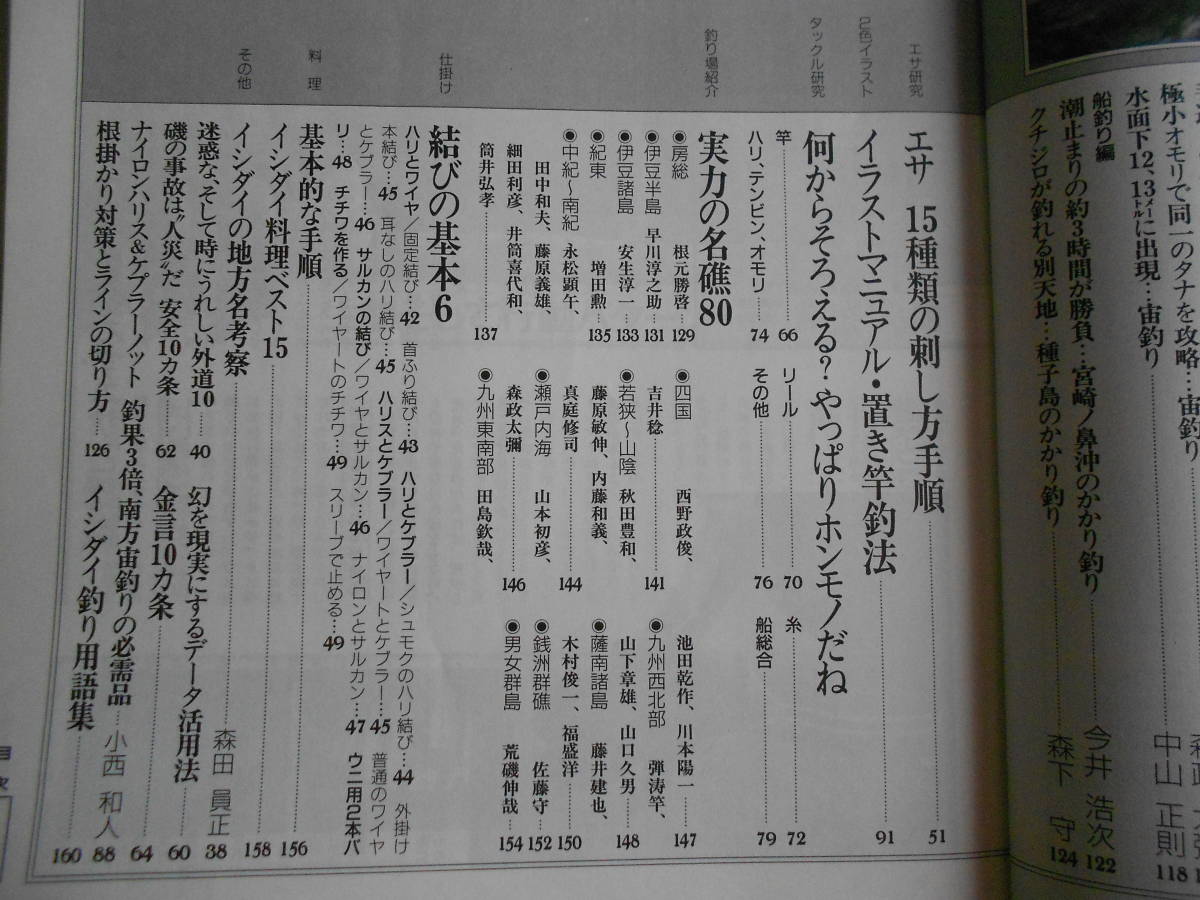 極小オモリで同一のタナを攻略…宙釣り
水面下12、13メートルに出現…宙釣り
中山 正則
118
船釣り編
潮止まりの約3時間が勝負…宮崎ノ鼻沖のかかり釣り
今井 浩次 122
クチジロが釣れる別天地…種子島のかかり釣り
森下 守 124
エサ研究
エサ 15種類の刺し方手順 51
2色イラスト
イラストマニュアル・置き竿釣法 91
タックル研究
何からそろえる?やっぱりホンモノだね
竿 66 リール 70 糸 72
ハリ、テンビン、オモリ 74 その他 76 船総合 79
釣り場紹介
実力の名礁80
●房総 根元勝啓 129
●伊豆半島 早川淳之助 131
●伊豆諸島 安生淳一 133
●紀東 増田勲 135
●中紀〜南紀 永松顕午、
田中和夫、藤原義雄、
細田利彦、井筒喜代和、
筒井弘孝 137
●四国 西野政俊、
吉井稔 141
●若狭〜山陰 秋田豊和、
藤原敏伸、内藤和義、
真庭修司 144
●瀬戸内海 山本初彦、
森政太彌 146
●九州東南部 田島欽哉、
池田乾作、川本陽一 147
●九州西北部 弾涛竿、
山下章雄、山口久男 148
●薩南諸島 藤井建也、
木村俊一、福盛洋 150
●銭洲群礁 佐藤守 152
●男女群島 荒磯伸哉 154
仕掛け
結びの基本6
ハリとワイヤ/固定結び…42 首ふり結び…43 ハリとケブラー/シュモクのハリ結び…44 外掛け
本結び…45 耳なしのハリ結び…45 ハリスとケブラー/ワイヤートとケブラー…45 普通のワイヤ
とケブラー…46 サルカンの結び/ワイヤとサルカン…46 ナイロンとサルカン…47 ウニ用2本バ
リ…48 チチワを作る/ワイヤートのチチワ…49 スリーブで止める…49
料理
基本的な手順 156
イシダイ料理ベスト15 158
その他
イシダイの地方名考察 森田 員正 38
迷惑な、そして時にうれしい外道10 40 幻を現実にするデータ活用法 60
磯の事故は“人災”だ 安全10カ条 62 金言10カ条 64
ナイロンハリス&ケブラーノット 釣果3倍、南方宙釣りの必需品 小西 和人 88
根掛かり対策とラインの切り方 126 イシダイ釣り用語集 160
目次